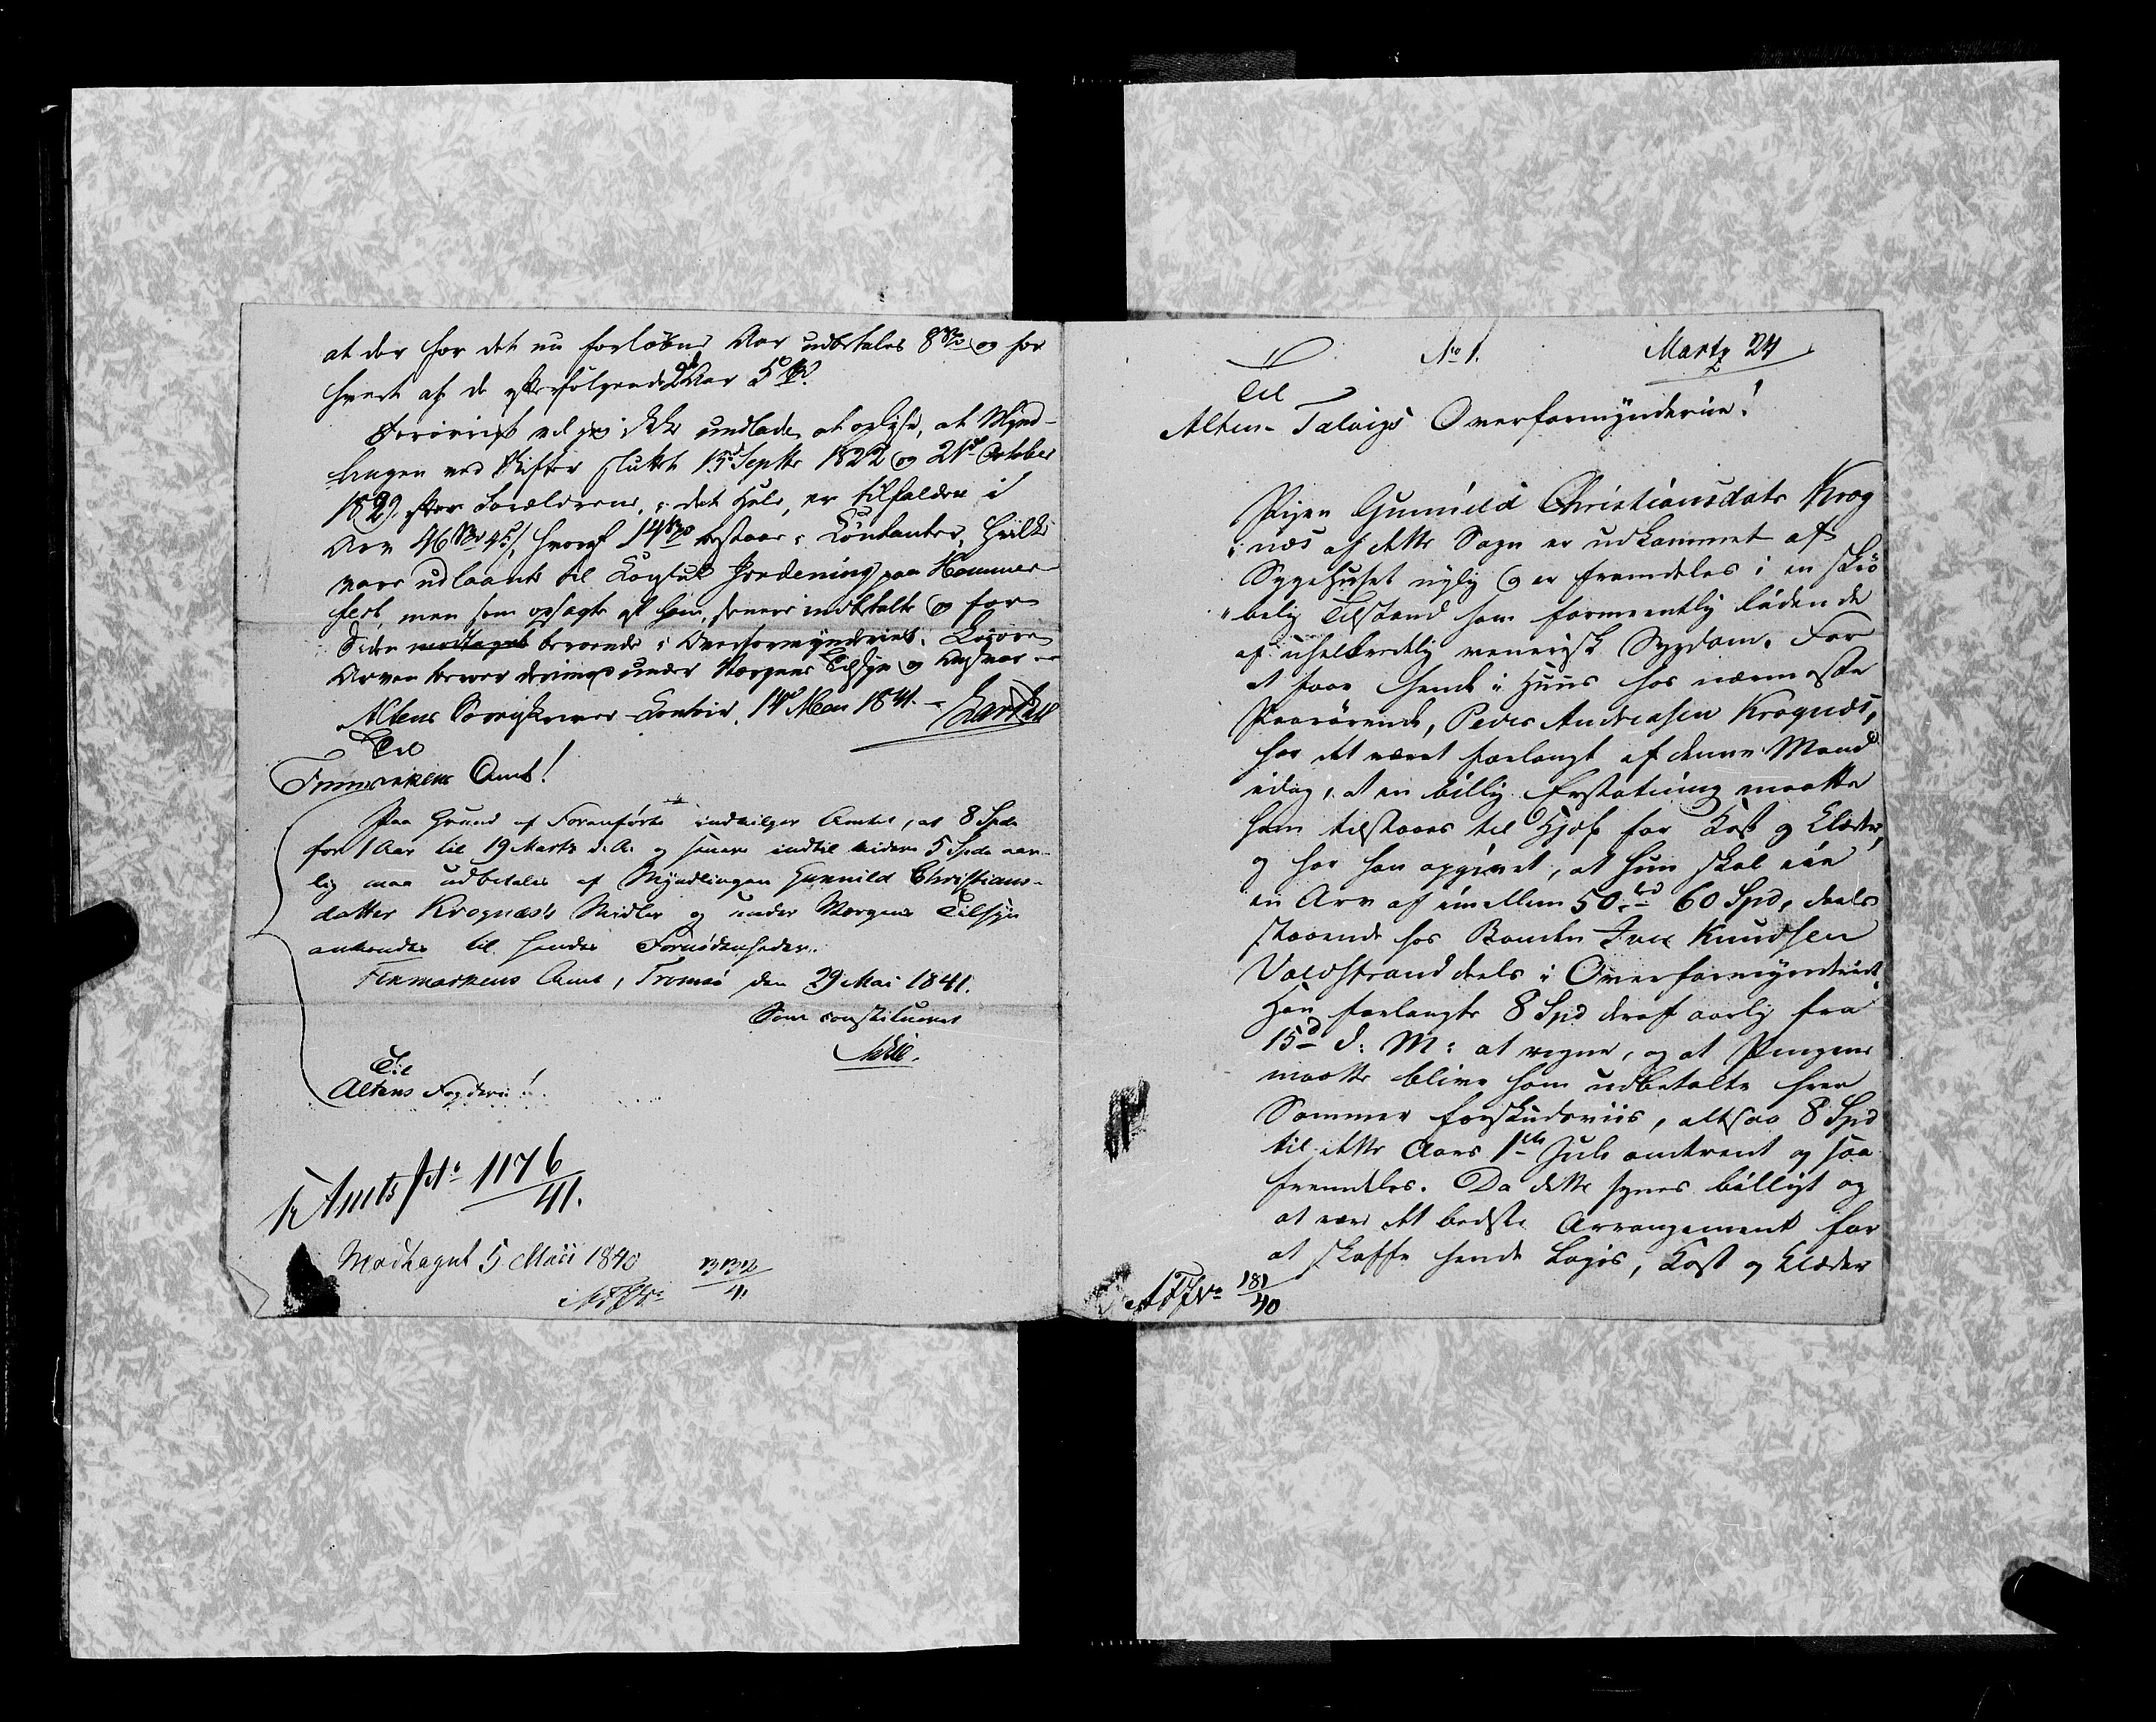 at der for det nu forløbne Aar udbetales 8 Spd og for
hvert af de efterfølgende Aar 5 Spd.
Forøvrigt vil jeg ikke undlade at oplyse, at Mynd-
lingen ved Skifter sluttet 15d Septbr 1822 og 21d October
1829 efter Forældrene, i det Hele, er tilfalden i
Arv 46 Spd 45 s, hvoraf 14 Spd bestaar i Contanter, hvilke
vare udlaante til Jordening paa Hammer-
fest, men som opsagte af ham, senere indbetalte og for
Tiden modtaget beroende i Overformynderiet. Løsøre
Arven beroer derimod under Værgens Tilsyn og Ansvar
Altens Sorenskriver-Contoir, 14d Mai 1841.
Til
Finmarkens Amt!
Paa Grund af Foranførte indvilger Amtet, at 8 Spd
for 1 Aar til 19 Marts d. A. og senere indtil videre 5 Spd aar-
lig maa udbetales af Myndlingen Gunnild Christians-
datter Krognæs's Midler og under Værgens Tilsyn
anvendes til hendes Fornødenheder.
Finmarkens Amt, Tromsø den 29 Mai 1841.
Som constitueret
Til
Altens Fogderi!
Amts No 1176
41.
Modtaget 5 Mai 1840
41
No 1.
Marts 24
Til
Alten-Talvigs Overformynderie!
Pigen Gunnild Christiansdatr Krog
næs af dette Sogn er udkommet af
Sygehuset nylig og er fremdeles i en skrø
belig Tilstand som formeentlig lidende
af uhelbredelig venerisk Sygdom. For
at faae hende i Huus hos nærmeste
Paarørende, Peder Andreasen Krognæs,
har det været forlangt af denne Mand
idag, at en billig Erstatning maatte
ham tilstaaes til Hjelp for Kost og Klæder,
og har han opgivet, at hun skal eie
en Arv af imellem 50 og 60 Spd, deels
staaende hos Bonden Iver Knudsen
Voldstrand deels i Overformynderiet.
Han forlangte 8 Spd deraf aarlig fra
15d d: M: at regne, og at Pengene
maatte blive ham udbetalte hver
Sommer forskudsviis, altsaa 8 Spd
til dette Aars 1ste Juli omtrent og saa
fremdeles. Da dette synes billigt og
at være det bedste Arrangement for
at skaffe hende Logis, Kost og Klæder
181
40